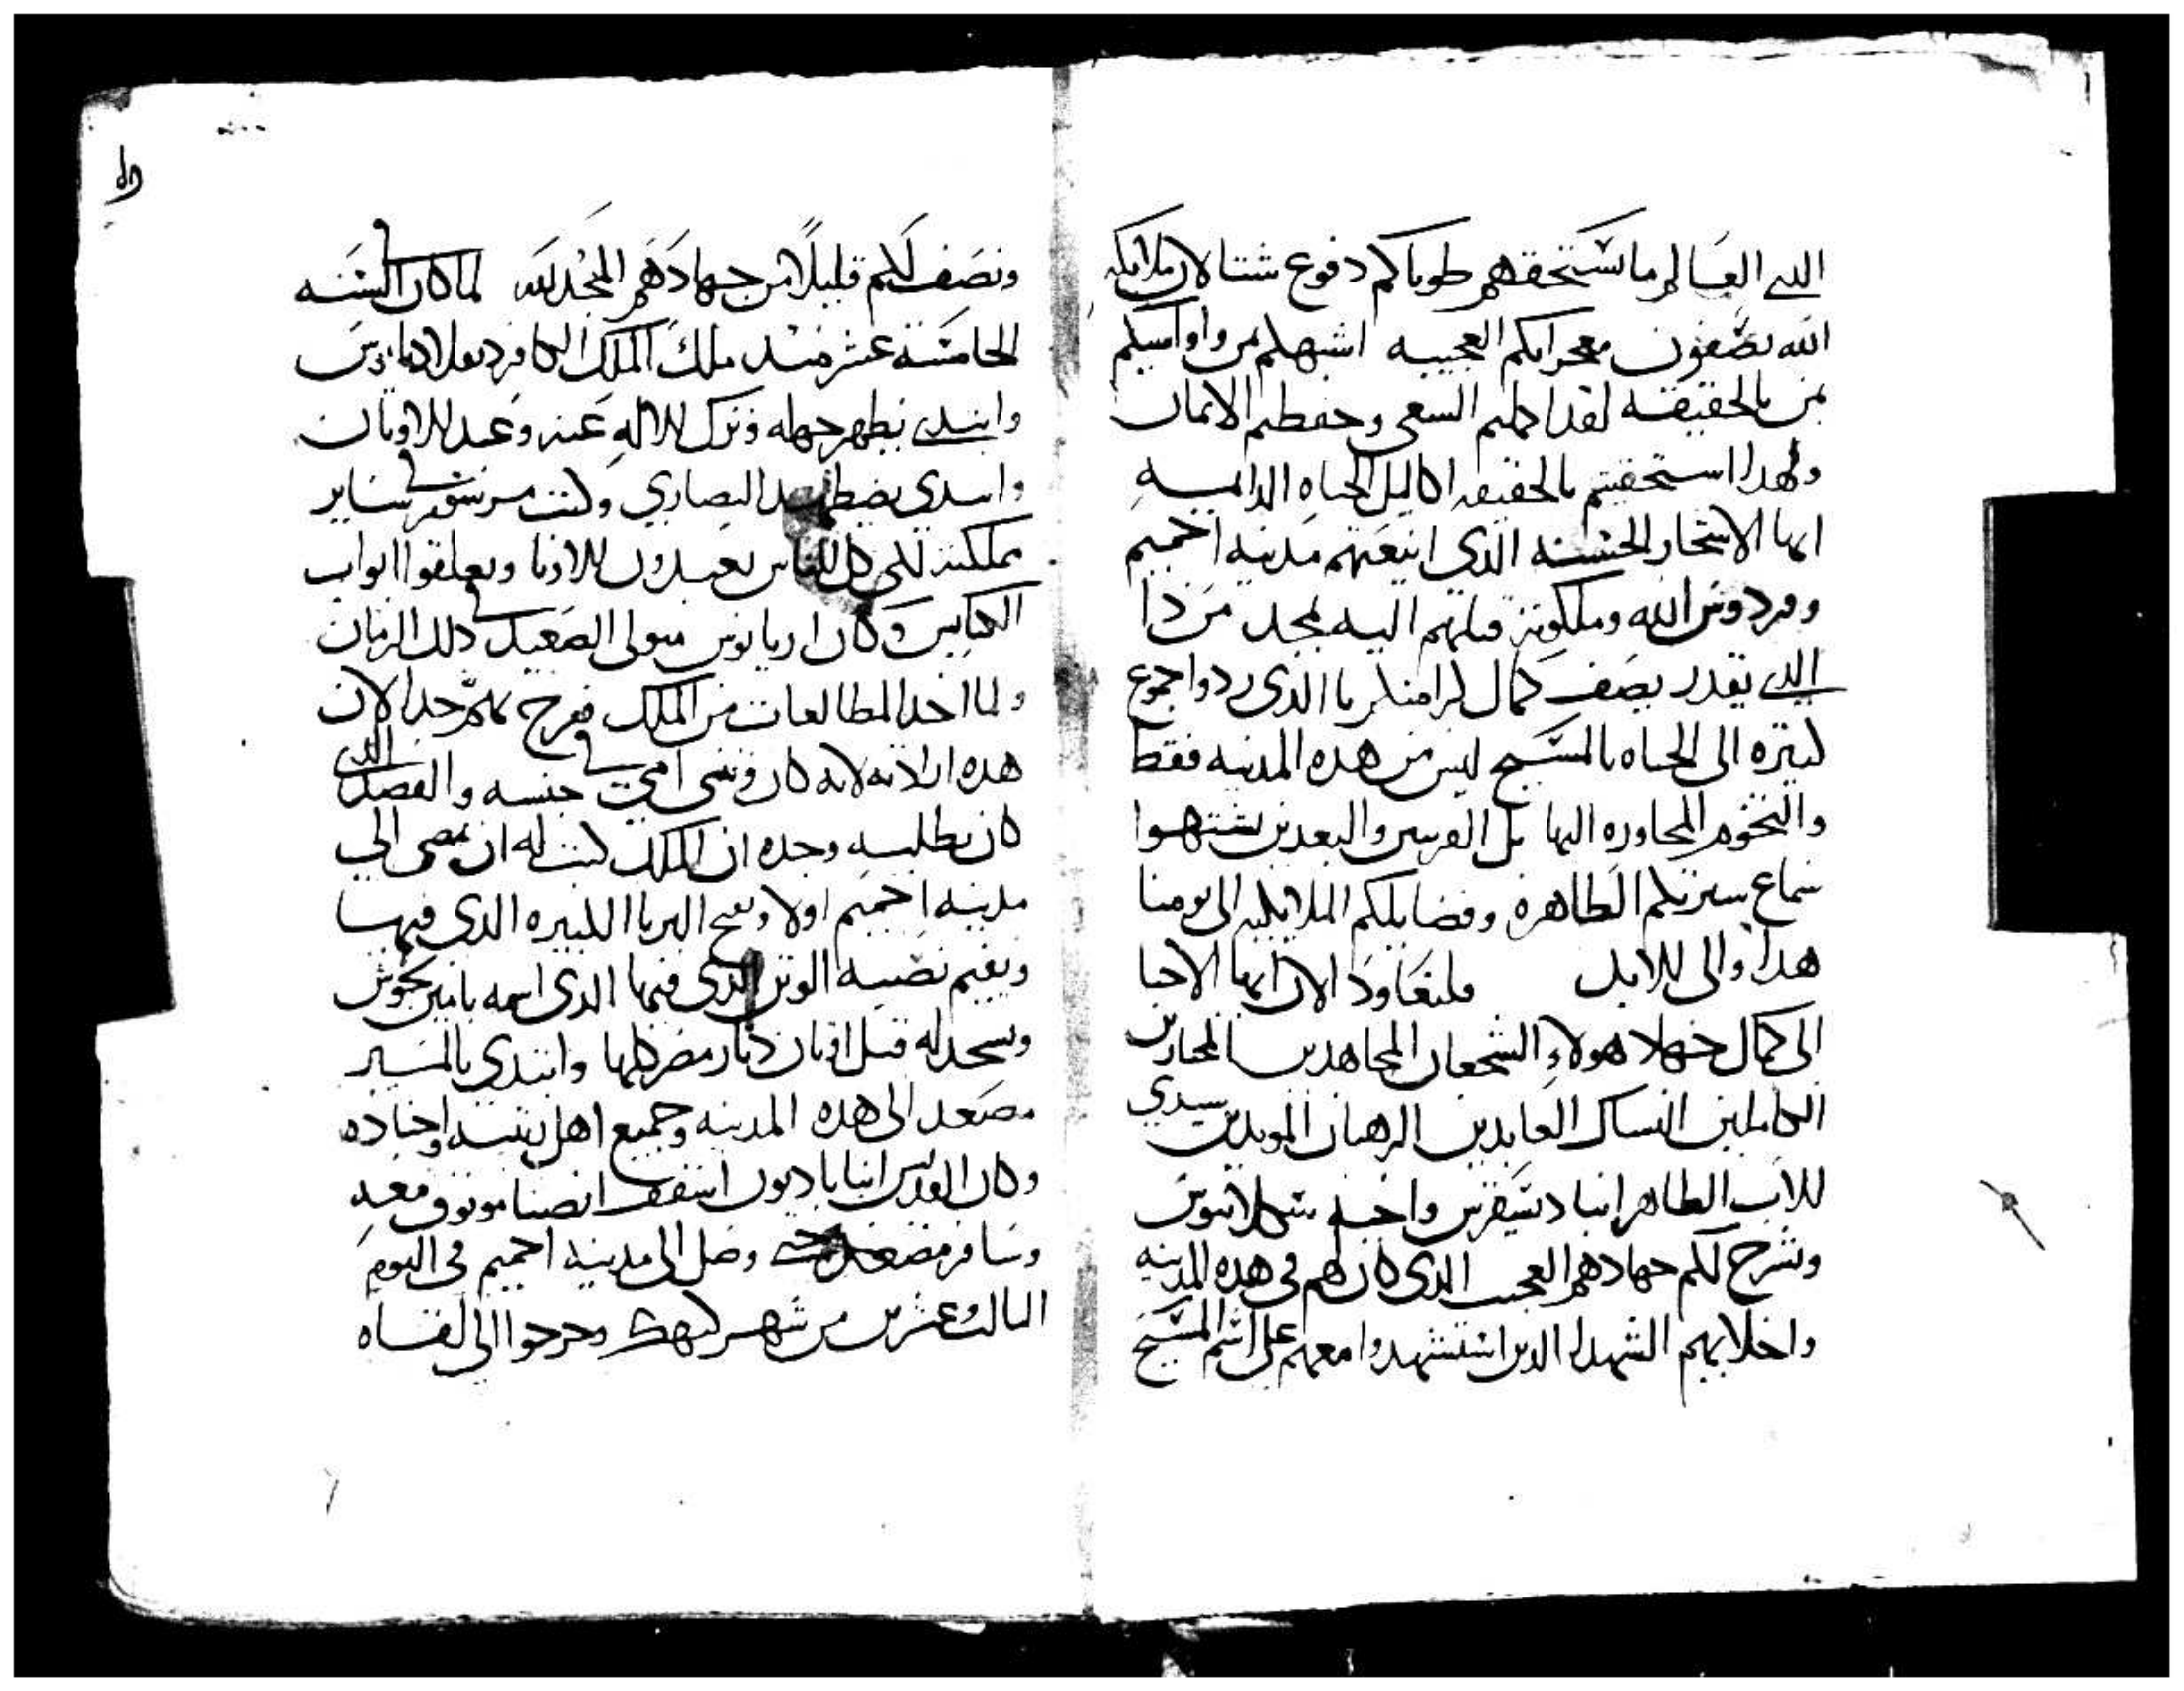 الدي العالم ما يستحقهم طوباكم دفوع شتا لان ملايكه
الله يصفون معجزاتكم العجيبه اشبهكم بمن واواسيكم
بمن بالحقيقه لقد اكملتم السعي وحفظتم الامان
ولهدا استحقيتم بالحقيقه اكاليل الحياه الدايمـه
ايها الاشجار الحسنه الدي اينعتهم مدينه اخميم
وفردوس الله وملكوته قبلتهم اليه بمجد من دا
الدي يقدر يصف كمال كرامتكم يا الدي ردوا جموع
كتيره الى الحياه بالمسيح ليس من هده المدينه فقط
والتخوم المجاوره اليها بل القريبين والبعدين يشتهوا
سماع سيرتكم الطاهره وفضايلكم الملايكيه الى يومنا
هدا والى الابد فلنعاود الان ايها الاحبا
الى كمال جهاد هولاء الشجعان المجاهدين المحاربين
الكاملين النساك العابدين الرهبان المويدين سيدي
الاب الطاهر انبا ديسقرس واخيه سكلابيوس
ونشرح لكم جهادهم العجيب الدي كان لهم في هده المدينه
واخلايهم الشهدا الدين استشهدوا معهم على اسم المسيح
ونصف لكم قليلا من جهادهم المجد لله لما كان في السنه
الخامسه عشر من ملك الملك الكافر دقلاديانوس
وابتدى يظهر جهله وترك الاله عنه وعبد الاوتان
وابتدي يضطهد النصاري وكتب مرسوم في ساير
مملكته لكي كل الناس يعبدون الاوتان ويغلقوا ابواب
الكنايس وكان اريانوس متولى الصعيد في دلك الزمان
ولما اخد المطالعات من الملك فرح بهم جدا لان
هده ارادته لانه كان وتني امي في جنسه والفصل الدي
كان يطلبه وجده ان الملك كتب له ان يمضي الى
مدينه اخميم اولا ويفتح البربا الكبيره الدي فيها
ويقيم نصبه الوتن الدي فيها الدي اسمه بامين بحوش
ويسجد له قبل اوتان ديار مصر كلها وابتدي بالمسير
مصعد الى هده المدينه وجميع اهل بيته واجناده
وكان القديس انبا باديون اسقف انصنا موتوق معه
وسافر مصعد حتى وصل الى مدينه اخميم في اليوم
التالت وعشرين من شهر كيهك وخرجوا الى لقاه